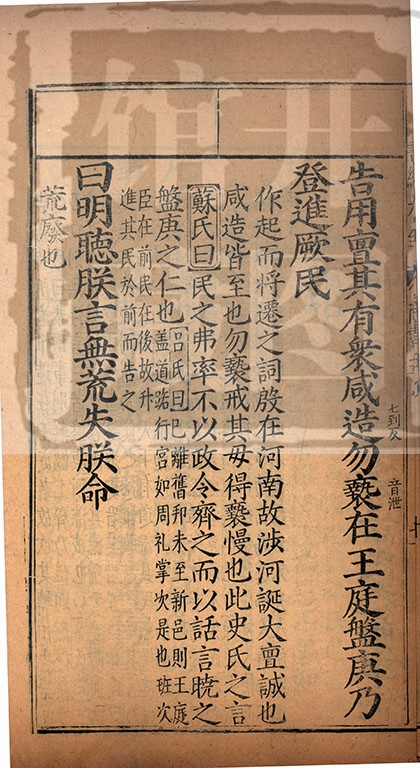 告用亶其有衆咸造七到反勿䙝音泄在王庭盤庚乃
登進厥民
作起而將遷之詞殷在河南故涉河誕大亶誠也
咸造皆至也勿䙝戒其毋得䙝慢也此史氏之言
蘇氏曰民之弗率不以政令齊之而以話言曉之
盤庚之仁也吕氏曰已離舊邦未至新邑則王庭
盖道路行宫如周礼掌次是也班次
臣在前民在後故升
進其民於前而告之
曰明聽朕言無荒失朕命
荒廢也